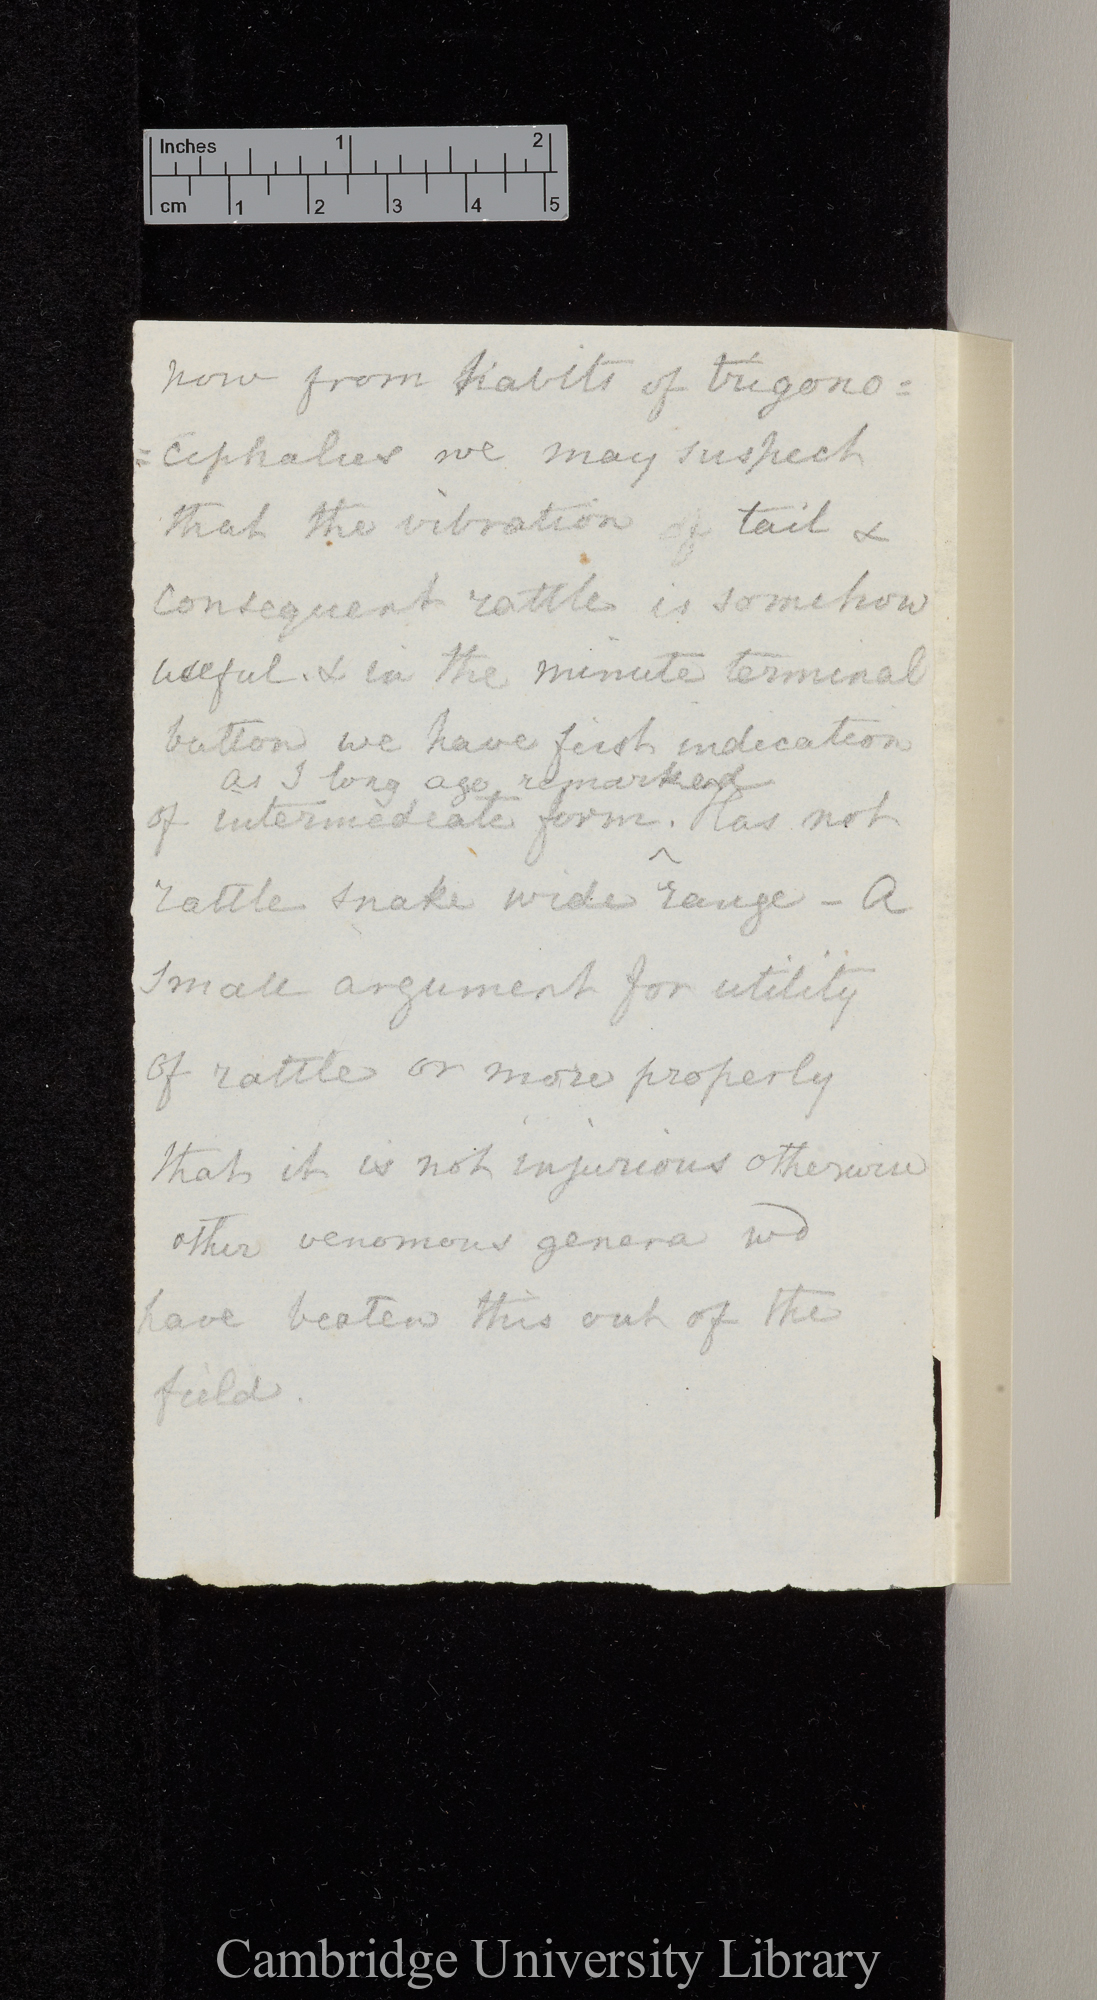 Inches 1 2
cm 1 2 3 4 5
now from habits of trigono=
=cephalus we may suspect
that the vibration of tail &
consequent rattle is somehow
useful. & in the minute terminal
button we have first indication
as I long ago remarked
of intermediate form. Has not
^
rattle snake wide range – A
small argument for utility
of rattle or more properly
that it is not injurious otherwise
other venomous genera wd
have beaten this out of the
field.
Cambridge University Library